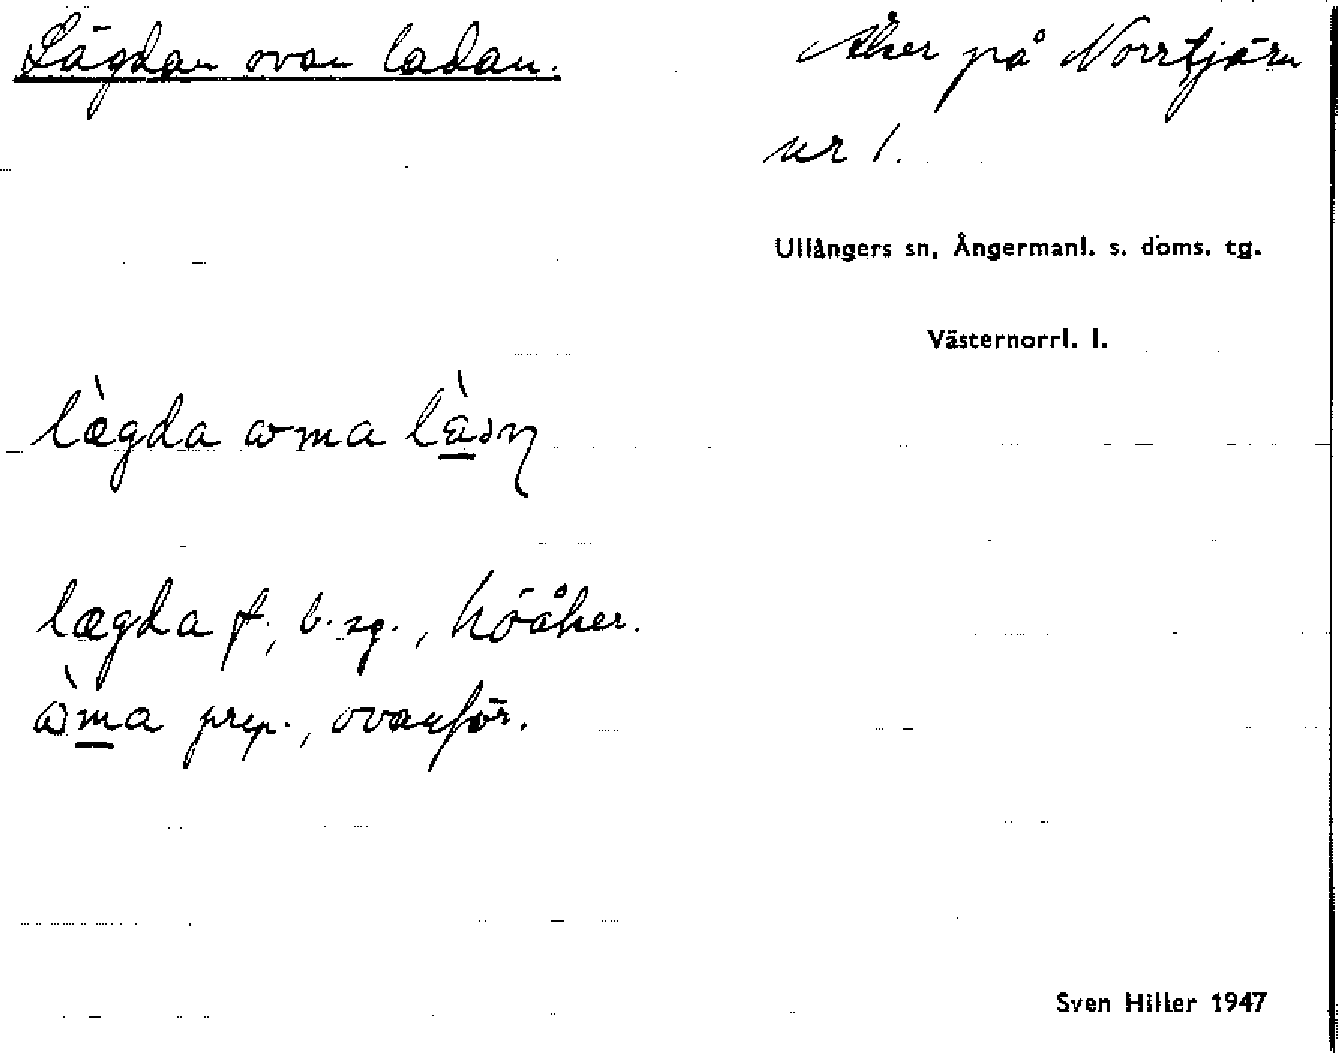 Lägdan ovan ladan.
Åker på Norrtjärn
nr 1.
Ullångers sn, Ångermanl. s. doms. tg.
Västernorrl. l.
lægda
lægda f., b. sg., höåker.
prep., ovanför.
Sven Hiller 1947